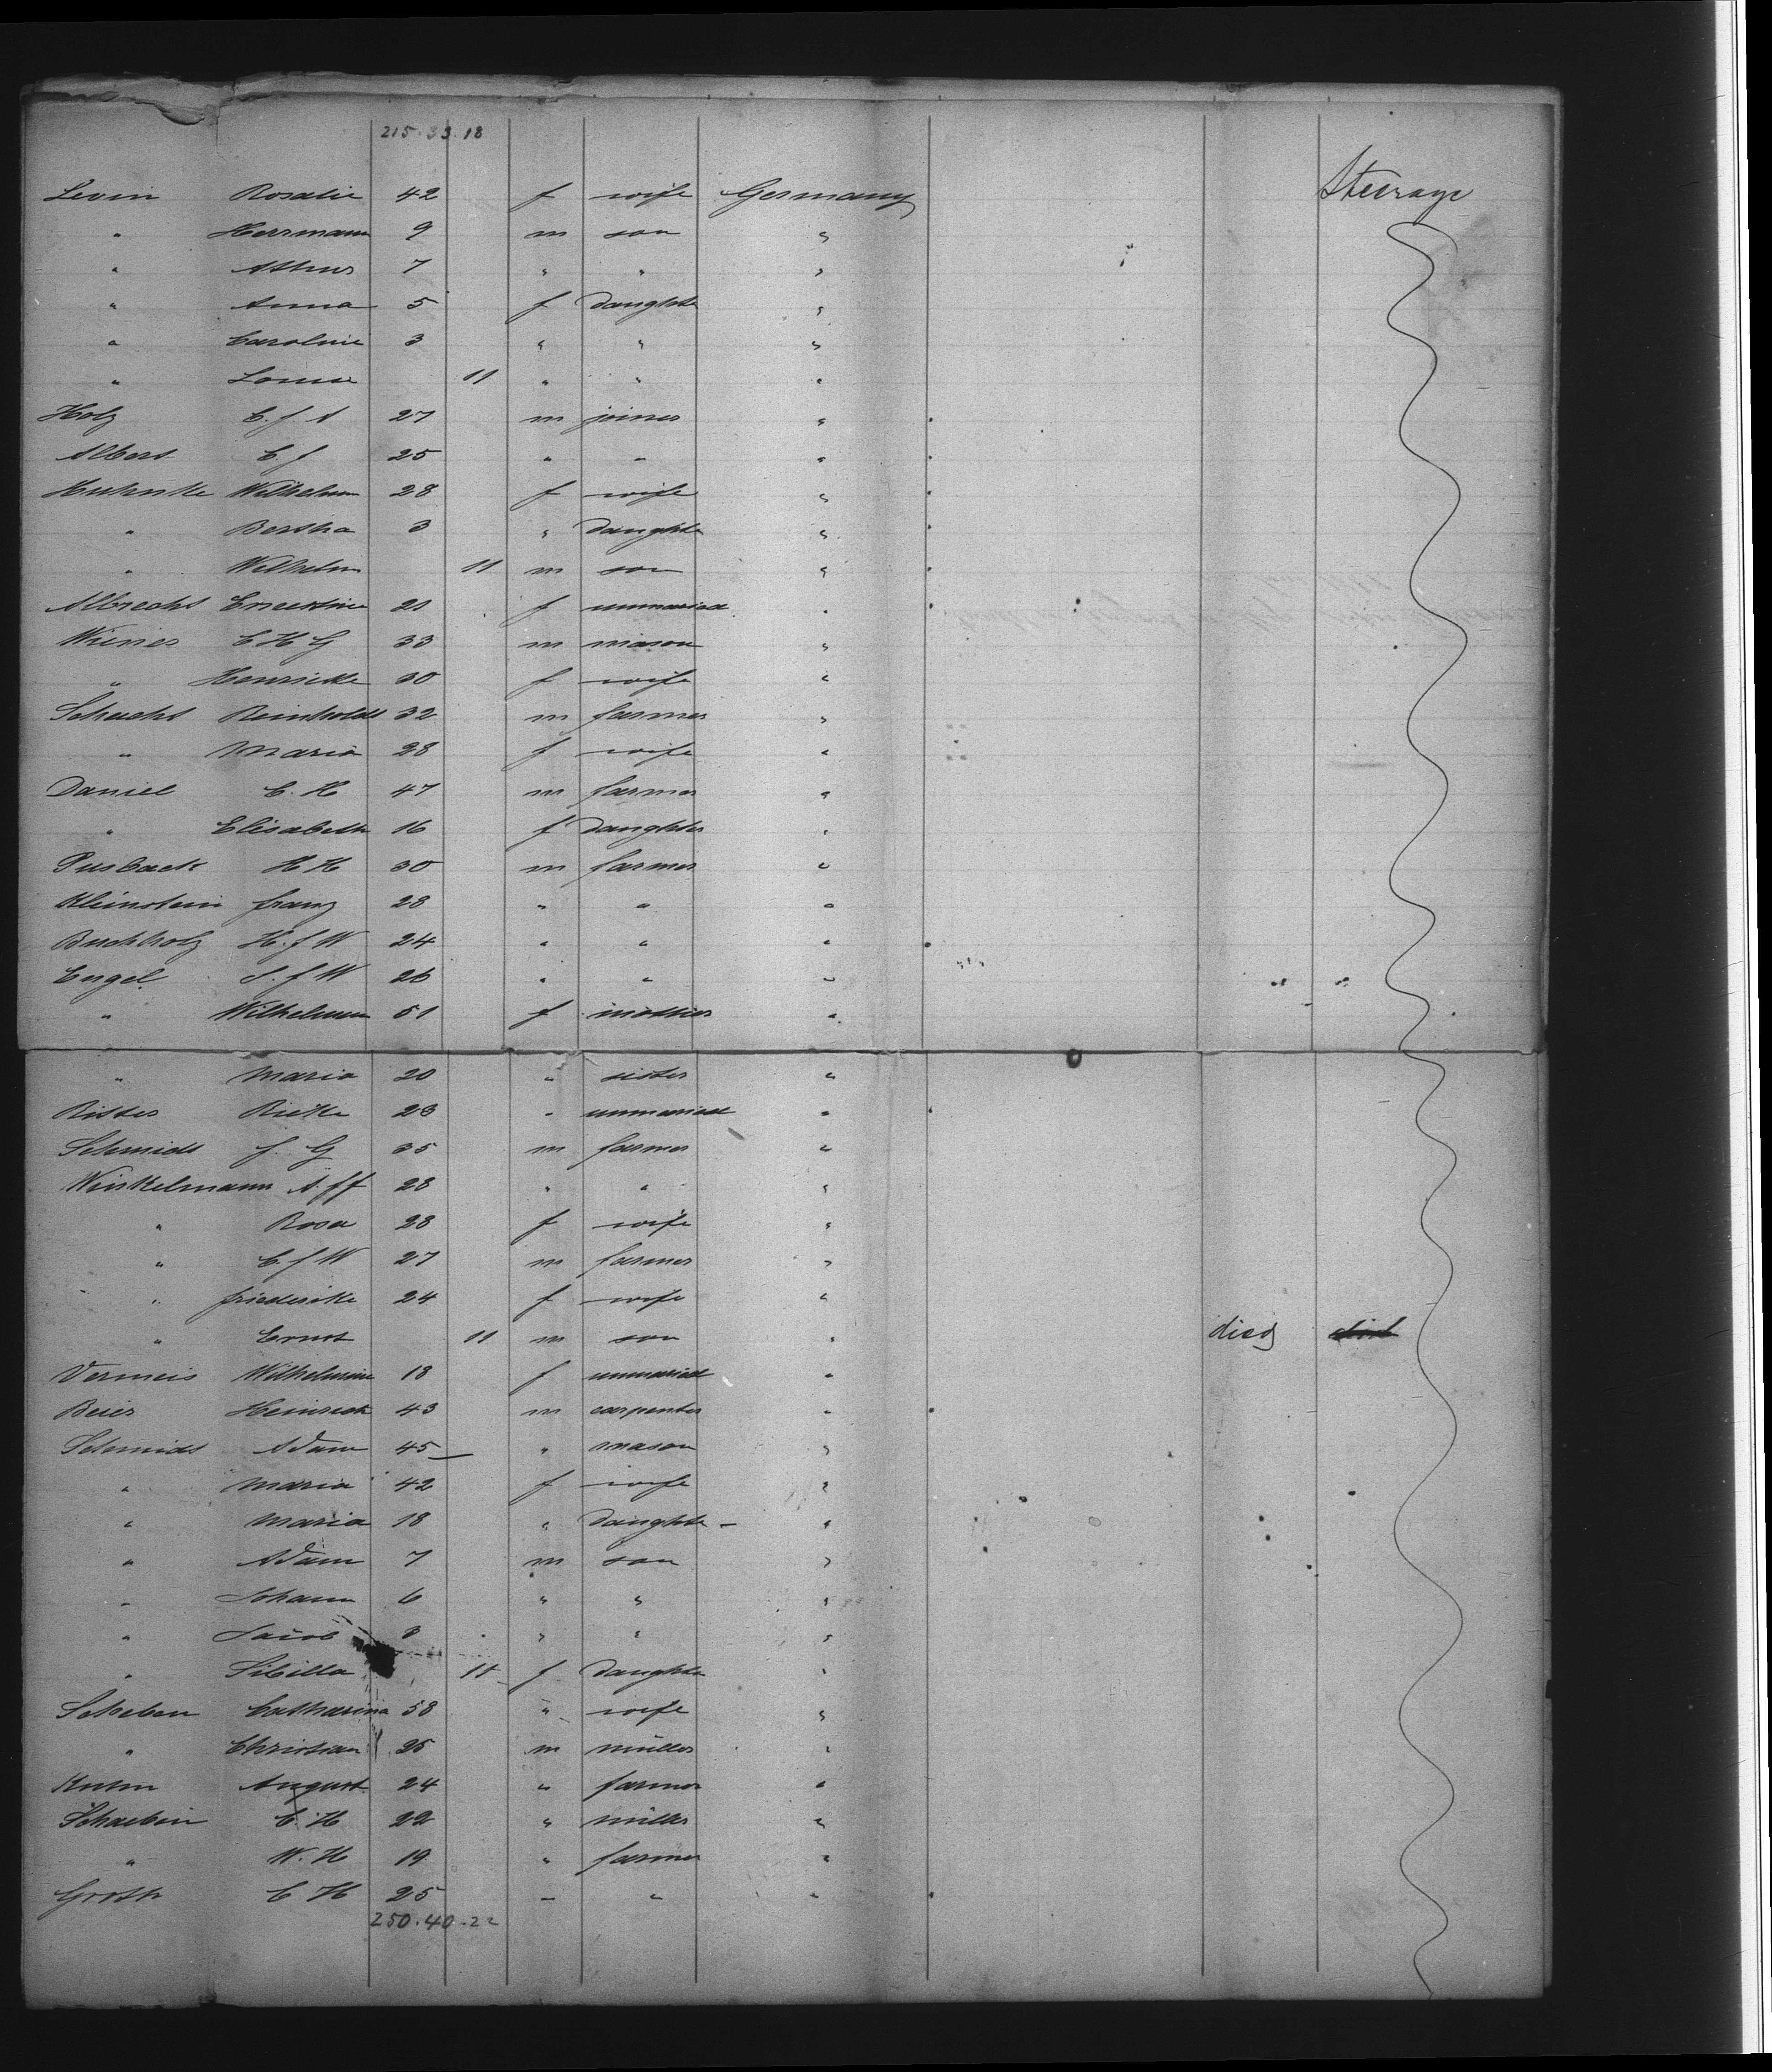 215.33.18
Levin Rosalie 42 f wife Germany Steerage
" Herrmann 9 m son "
" 7 " " "
" Anna 5 f daughte "
" Caroline 3 " " "
" Louise 11 " " "
Holz C. f. A 27 m joiner "
Albert C f 25 " " "
Wilhelm 28 f wife "
" Bertha 3 " daughte "
" Wilhelm 11 m son "
Albrecht Ernestine 21 f unmaried "
Wiener C H G 33 m mason "
" Henriette 30 f wife "
Schacht Reinholdt 32 m farmer "
" Maria 28 f wife "
Daniel C. H 47 m farmer "
" Elisabeth 16 f daughter "
Pusback H H 30 m farmer "
Kleinstein franz 28 " " "
Buchholz H. f W 24 " " "
Engel f W 26 " " "
" Wilhelmin 51 f mother "
" Maria 20 " sister "
Ritter Rieke 23 " unmaried "
Schmidt J. G 35 m farmer "
Winkelmann A. f f 28 " " "
" Rosa 28 f wife "
" C. f W 27 m farmer "
" friederike 24 f wife "
" Ernst 11 m son " died died
Wilhelmine 18 f unmaried "
Beier Heinrich 43 m carpenter "
Schmidt Adam 45 " mason "
" Maria 42 f wife "
" Maria 18 " daughte "
" Adam 7 m son "
" Johann 6 " " "
" Jacob 3 " " "
" Sibilla 11 f daughte "
Scheben Catharina 58 " wife "
" Christian 25 m müller "
August 24 " farmer "
Schaebin C. H 22 " müller "
" W. H 19 " farmer "
Groth C H 25 " " "
250.40-22